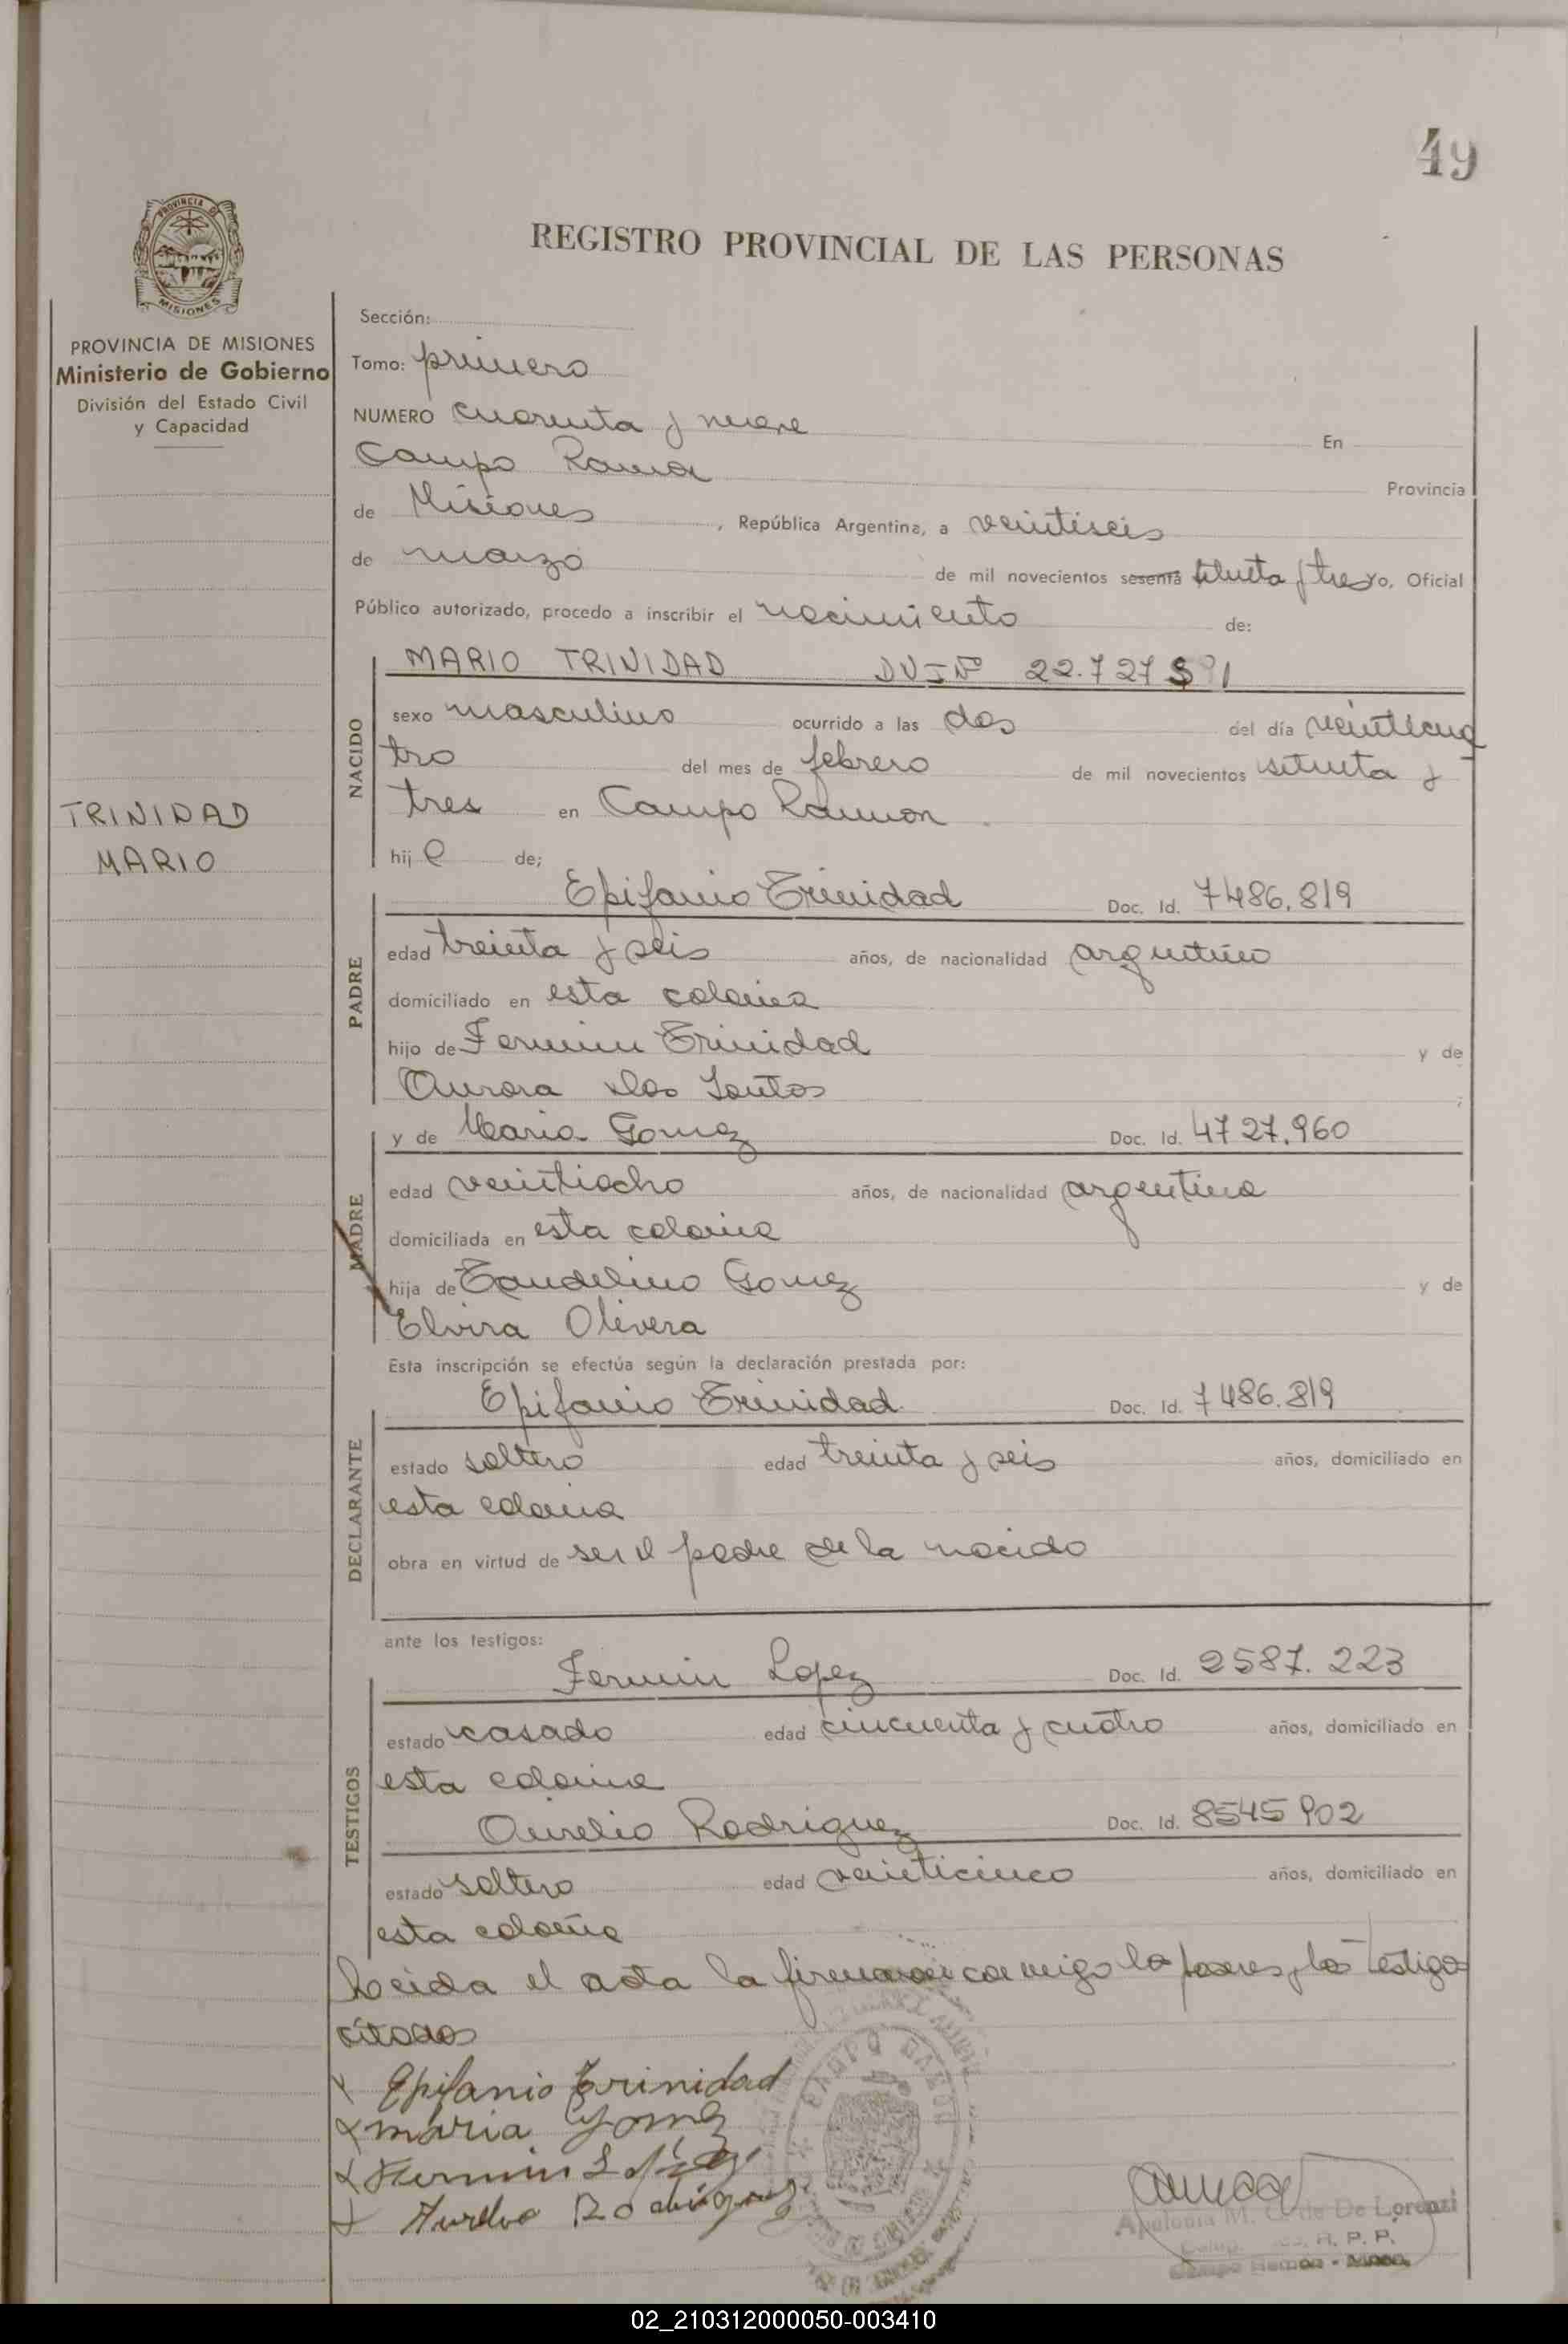 49
PROVINCIA D
MISIONES
REGISTRO PROVINCIAL DE LAS PERSONAS
PROVINCIA DE MISIONES
Ministerio de Gobierno
División del Estado Civil
y Capacidad
TRINIDAD
MARIO
Sección:
Tomo: primero
NUMERO cuarenta y nueve En
Campo Ramon Provincia
de Misiones , República Argentina, a veintiseis
de marzo de mil novecientos sesenta setenta y tres yo, Oficial
Público autorizado, procedo a inscribir el nacimiento de:
NACIDO
MARIO TRINIDAD DNI Nº 22.727 591
sexo masculino ocurrido a las dos del día veinticua
tro del mes de febrero de mil novecientos setenta y
tres en Campo Ramon
hijo de;
PADRE
Epifanio Trinidad Doc. Id. 7486.819
edad treinta y seis años, de nacionalidad argentino
domiciliado en esta colonia
hijo de Fermin Trinidad y de
Aurora Dos Santos ;
MADRE
y de Maria Gomez Doc. Id. 4727.960
edad veintiocho años, de nacionalidad argentina
domiciliada en esta colonia
hija de Gomez y de
Elvira Olivera
Esta inscripción se efectúa según la declaración prestada por:
DECLARANTE
Epifanio Trinidad Doc. Id. 7486.819
estado soltero edad treinta y seis años, domiciliado en
esta colonia
obra en virtud de ser el padre de la nacido
ante los testigos:
TESTIGOS
Fermin Lopez Doc. Id. 2587.223
estado casado edad cincuenta y cuatro años, domiciliado en
esta colonia
Aurelio Rodriguez Doc. Id. 8545902
estado soltero edad veinticinco años, domiciliado en
esta colonia
Leida el acta la firman conmigo los padres y los testigos
citados
x Epifanio Trinidad
x maria Gomez
x Fermin Lopez
x Aurelio Rodriguez
CAMPO RAMON
De Lorenzi
R. P. P.
Campo Ramon - Mnes.
02_210312000050-003410